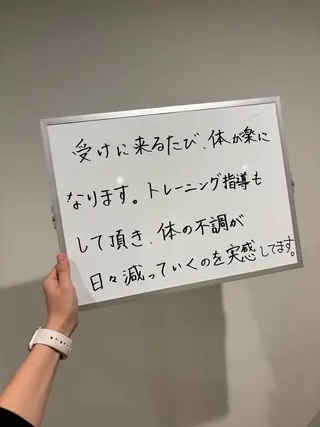 受けに来るたび、体が楽に
なります。トレーニング指導も
して頂き、体の不調が
日々減っていくのを実感してます。